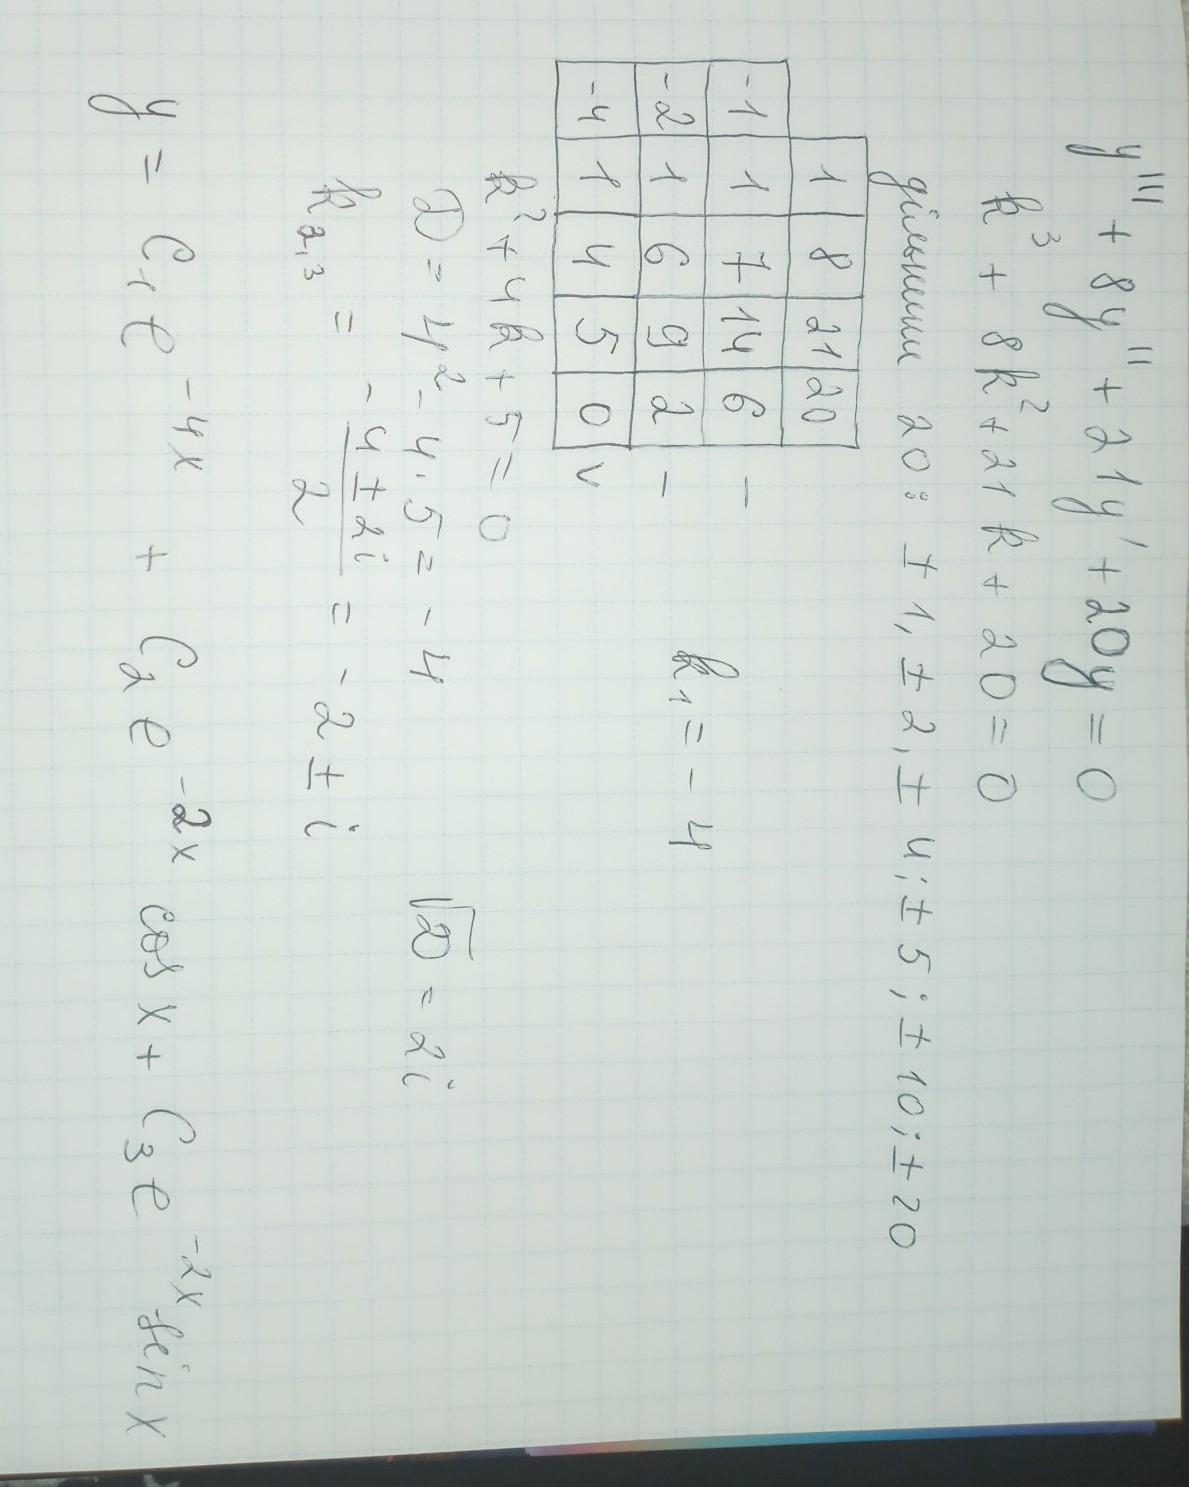 y''' + 8y'' + 21y' + 20y = 0
k³ + 8k² + 21k + 20 = 0
дільники 20: ± 1, ± 2, ± 4; ± 5; ± 10; ± 20
1 8 21 20
-1 1 7 14 6 –
-2 1 6 9 2 –
-4 1 4 5 0 v
k₁ = -4
k² + 4k + 5 = 0
D = 4² - 4·5 = -4 √D = 2i
k₂,₃ = (-4 ± 2i)/2 = -2 ± i
y = C₁e^(-4x) + C₂e^(-2x) cos x + C₃e^(-2x) sin x